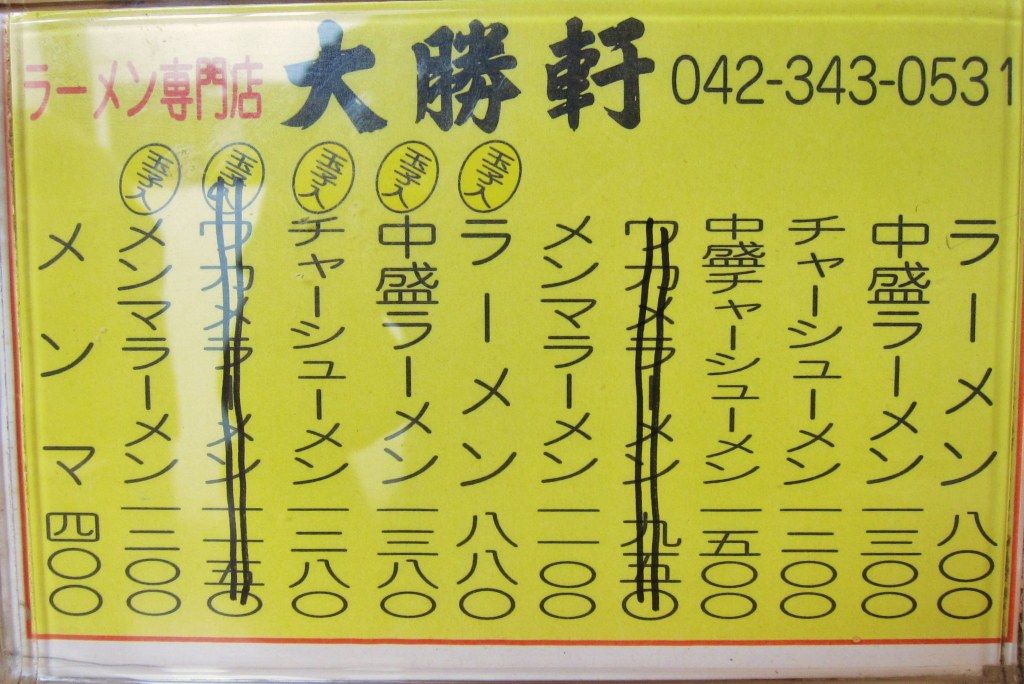 ラーメン専門店 大勝軒 042-343-0531
ラーメン 八〇〇
中盛ラーメン 一三〇〇
チャーシューメン 一二〇〇
中盛チャーシューメン 一五〇〇
ワカメラーメン 九五〇
メンマラーメン 一一〇〇
玉子入 ラーメン 八八〇
玉子入 中盛ラーメン 一三八〇
玉子入 チャーシューメン 一二八〇
玉子入 ワカメラーメン
玉子入 メンマラーメン 一二〇〇
メンマ 四〇〇